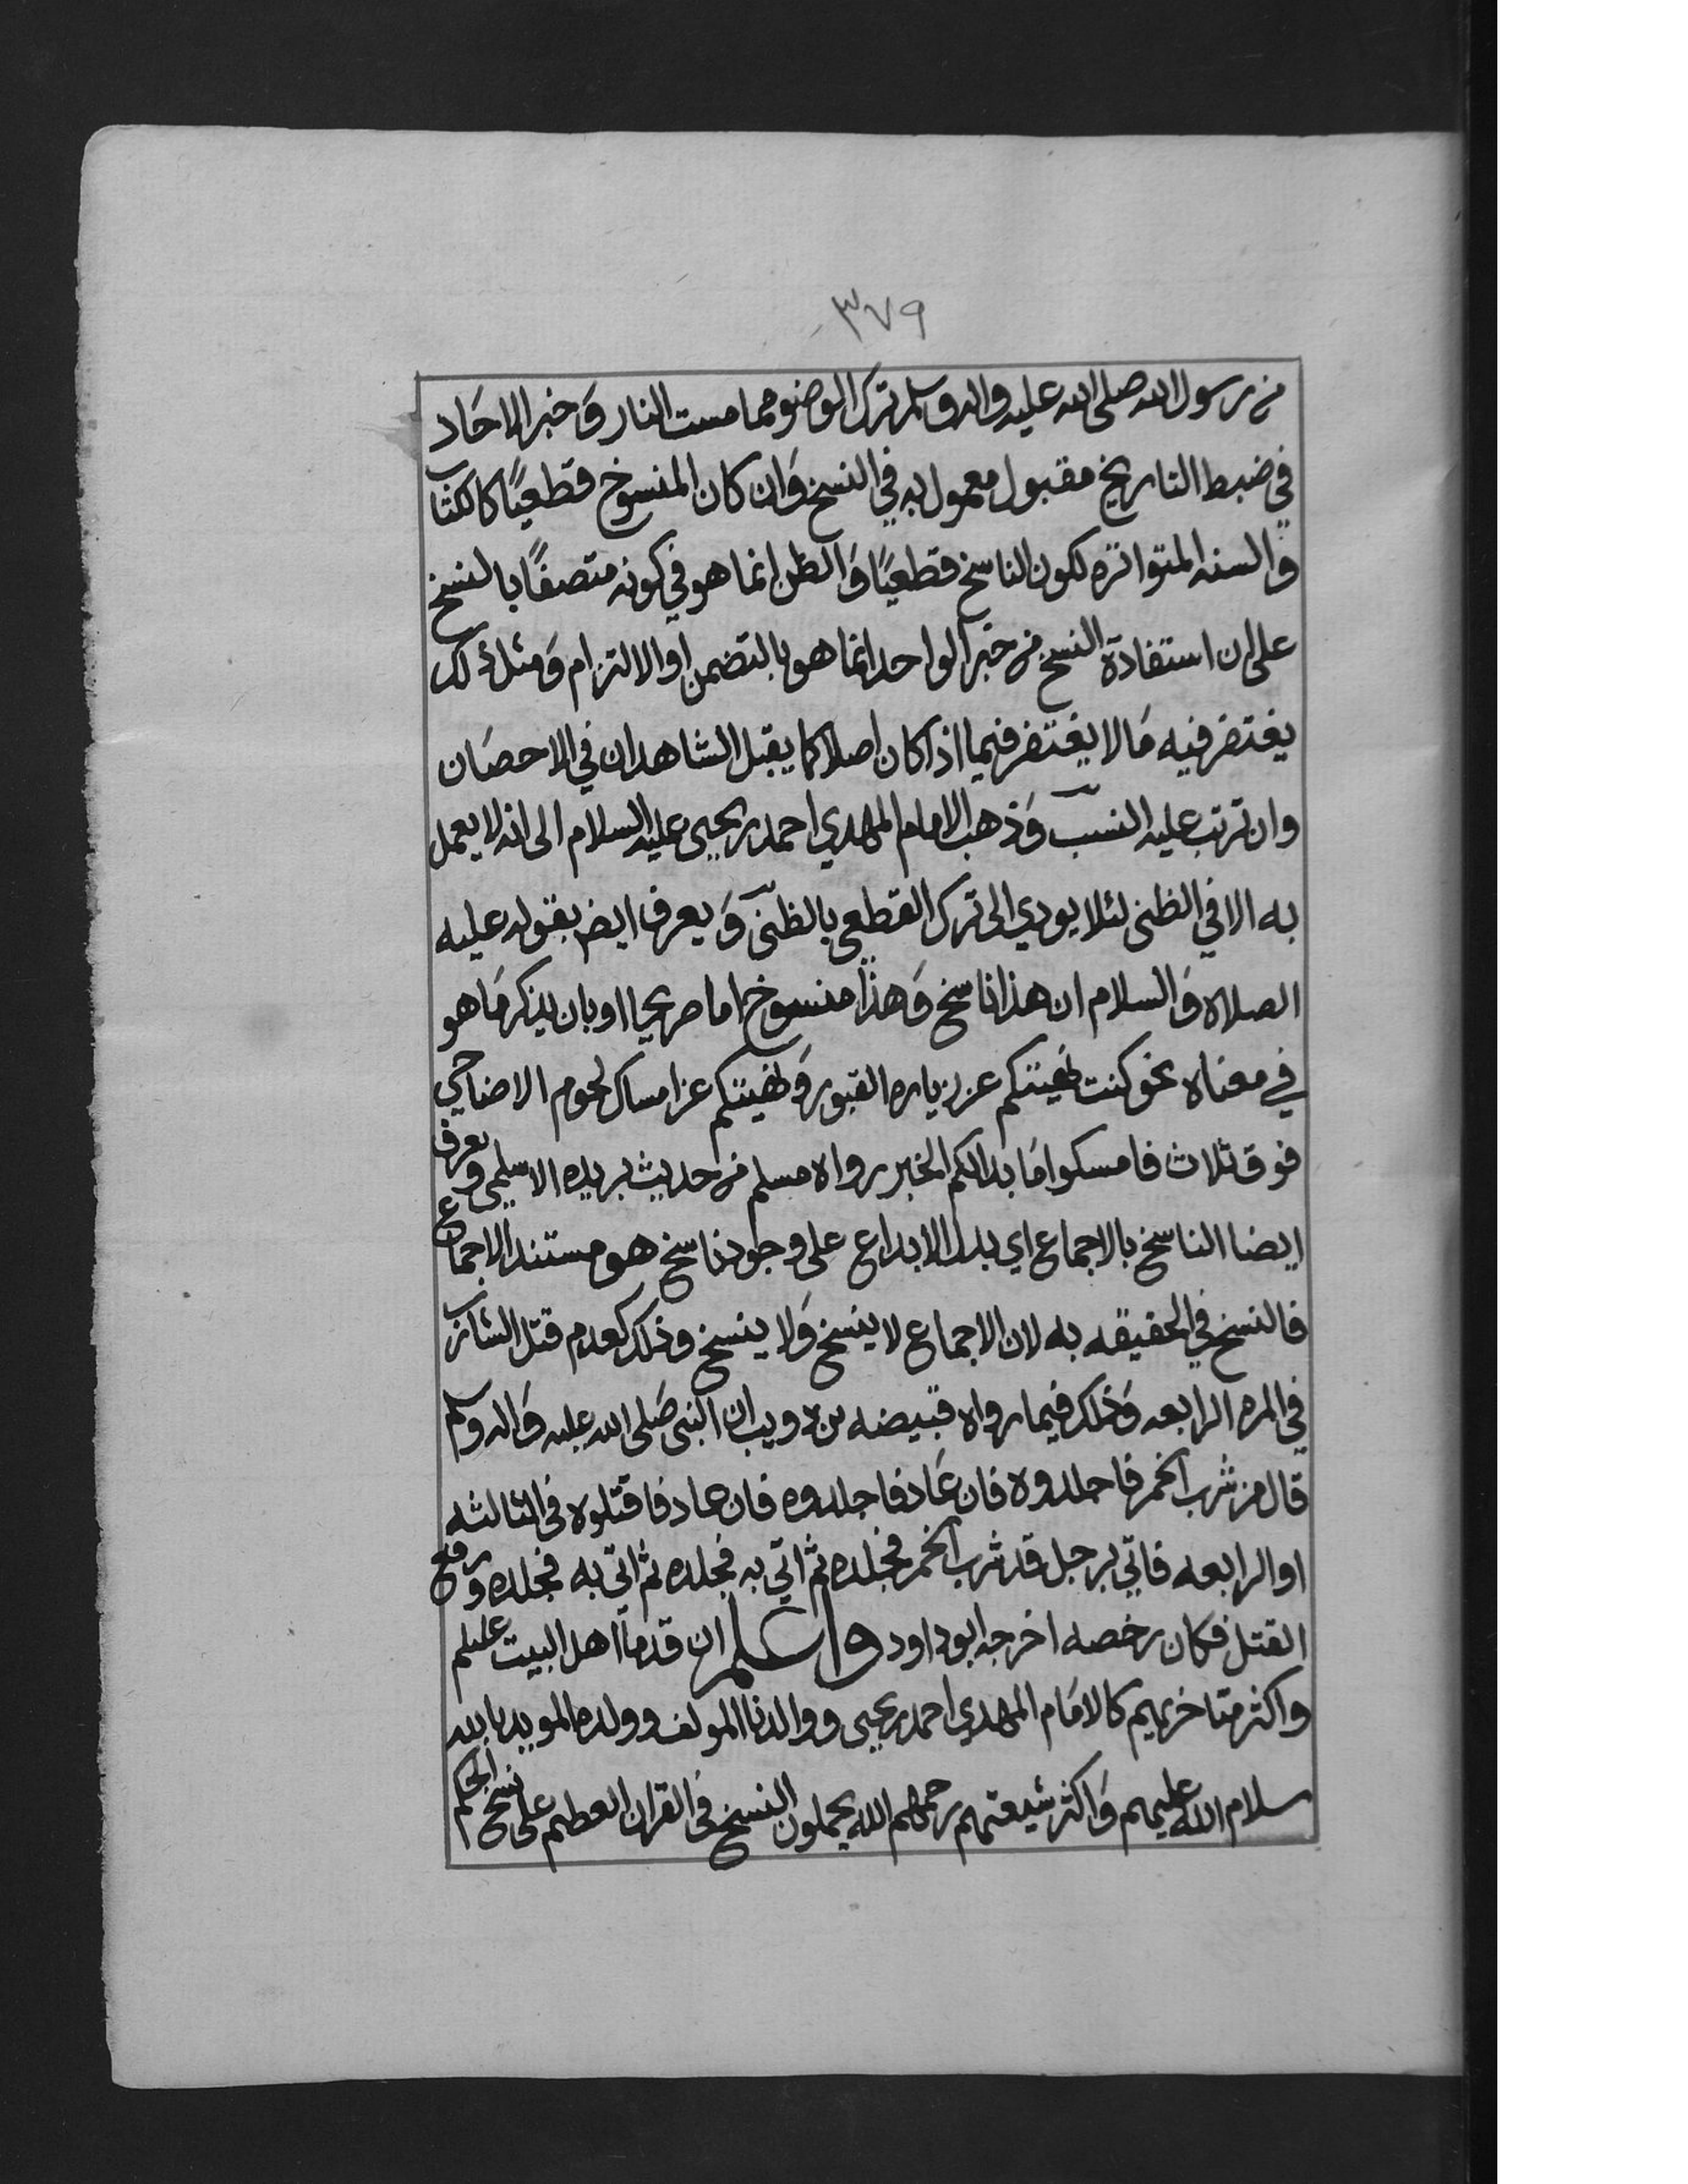 ٣٧٩
من رسول الله صلى الله عليه واله وسلم ترك الوضو مما مست النار وَخبر الاحَاد
في ضبط التاريخ مقبول معمول به في النسخ وَان كان المنسوخ قطعيًا كالكتاب
وَالسنه المتواتره لكون الناسخ قطعيًا وَالظن انما هو في كونه متصفًا بالنسخ
على ان استفادة النسخ من خبر الواحد انما هو بالتضمن او الالتزام وَمثل ذلك
يغتفر فيه مَا لا يغتفر فيما اذا كان اصلا كما يقبل الشاهدان في الاحصَان
وان ترتب عليه النسب وَذهب الامام المهدي احمد بن يحيى عليه السلام الى انه لا يعمل
به الا في الظنى لئلا يودي الى ترك القطعى بالظنى وَيعرف ايض بقوله عليه
الصلاه وَالسلام ان هذا ناسخ وَهذا منسوخ اما صريحا او بان يذكر مَا هو
في معناه نحو كنت نهيتكم عن زياره القبور وَنهيتكم عن امساك لحوم الاضاحي
فوق ثلاث فامسكوا مَا بدا لكم الخبر رواه مسلم من حديث بريده الاسلمي ويعرف
ايضا الناسخ بالاجماع اي بدلالا بداع على وجود ناسخ هو مستند الاجماع
فالنسخ في الحقيقه به لان الاجماع لا ينسخ وَلا ينسخ وذلك كعدم قتل الشارب
في المره الرابعه وَذلك فيما رواه قبيصه بن ذويب ان النبي صَلى الله عليه وَاله وسلم
قال من شرب الخمر فاجلدوه فان عَاد فاجلدوه فان عاد فاقتلوه في الثالثه
او الرابعه فاتي برجل قد شرب الخمر فجلده ثم اتي به فجلده ثم اتى به فجلده ورفع
القتل فكان رخصه اخرجه ابو داود واعلم ان قدمآ اهل البيت عليلم
واكثر متاخريهم كالامَام المهدي احمد بن يحيى ووالدنا المولف وولده المويد بالله
سلام الله عليهم وَاكثر شيعتهم رحمهم الله يحملون النسخ في القران العظيم على نسخ الحكم